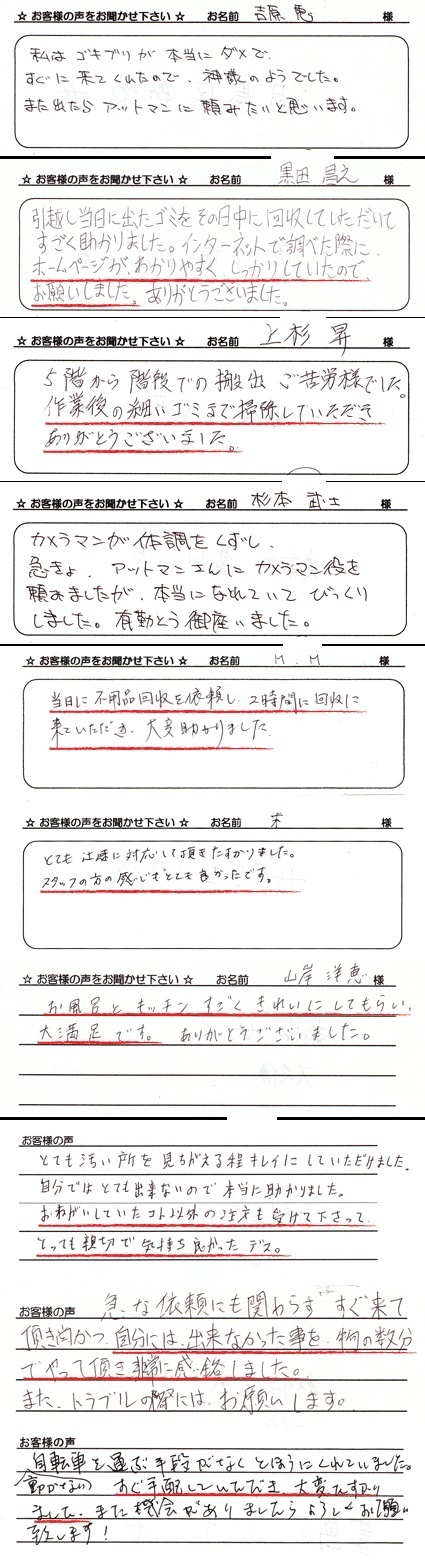 ☆ お客様の声をお聞かせ下さい ☆ お名前 吉原 恵 様
私は ゴキブリが 本当に ダメで、
すぐに 来てくれたので、神様のようでした。
また出たら アットマンに 頼みたいと思います。
☆ お客様の声をお聞かせ下さい ☆ お名前 黒田 昌之 様
引越し当日に出たゴミをその日中に回収していただいて
すごく助かりました。インターネットで調べた際に、
ホームページが、わかりやすく、しっかりしていたので、
お願いしました。ありがとうございました。
☆ お客様の声をお聞かせ下さい ☆ お名前 上杉 昇 様
5階から 階段での 搬出 ご苦労様でした。
作業後の細いゴミまで掃除していただき
ありがとうございました。
☆ お客様の声をお聞かせ下さい ☆ お名前 杉本 武士 様
カメラマンが 体調を くずし、
急きょ、アットマンさんに カメラマン役を
願みましたが、本当に なれていて びっくり
しました。有勤とう御座いました。
☆ お客様の声をお聞かせ下さい ☆ お名前 M.M 様
当日に 不用品回収を依頼し、2時間に回収に
来ていただき、大変助かりました。
☆ お客様の声をお聞かせ下さい ☆ お名前 様
とても 迅速に対応して頂きたすかりました。
スタッフの方の感じもとても良かったです。
☆ お客様の声をお聞かせ下さい ☆ お名前 山岸 洋恵 様
お風呂と キッチン すごく きれいに してもらい、
大満足です。 ありがとうございました。
お客様の声
とても汚い所を 見ちがえる程キレイに していただけました。
自分では とても出来ないので 本当に助かりました。
おねがいしていたコト以外の注文も 受けて下さって、
とっても親切で 気持ち良かった デス。
お客様の声 急な依頼にも関わらず すぐ来て
頂き向かつ、自分には、出来なかった事を、物の数分
でやって頂き 非常に感銘しました。
また、トラブルの際には、お願いします。
お客様の声
自転車を運ぶ手段がなく とほうにくれていました。
動かない すぐ手配していただき、大変たすかり
ました。また機会がありましたら よろしくお願い
致します！